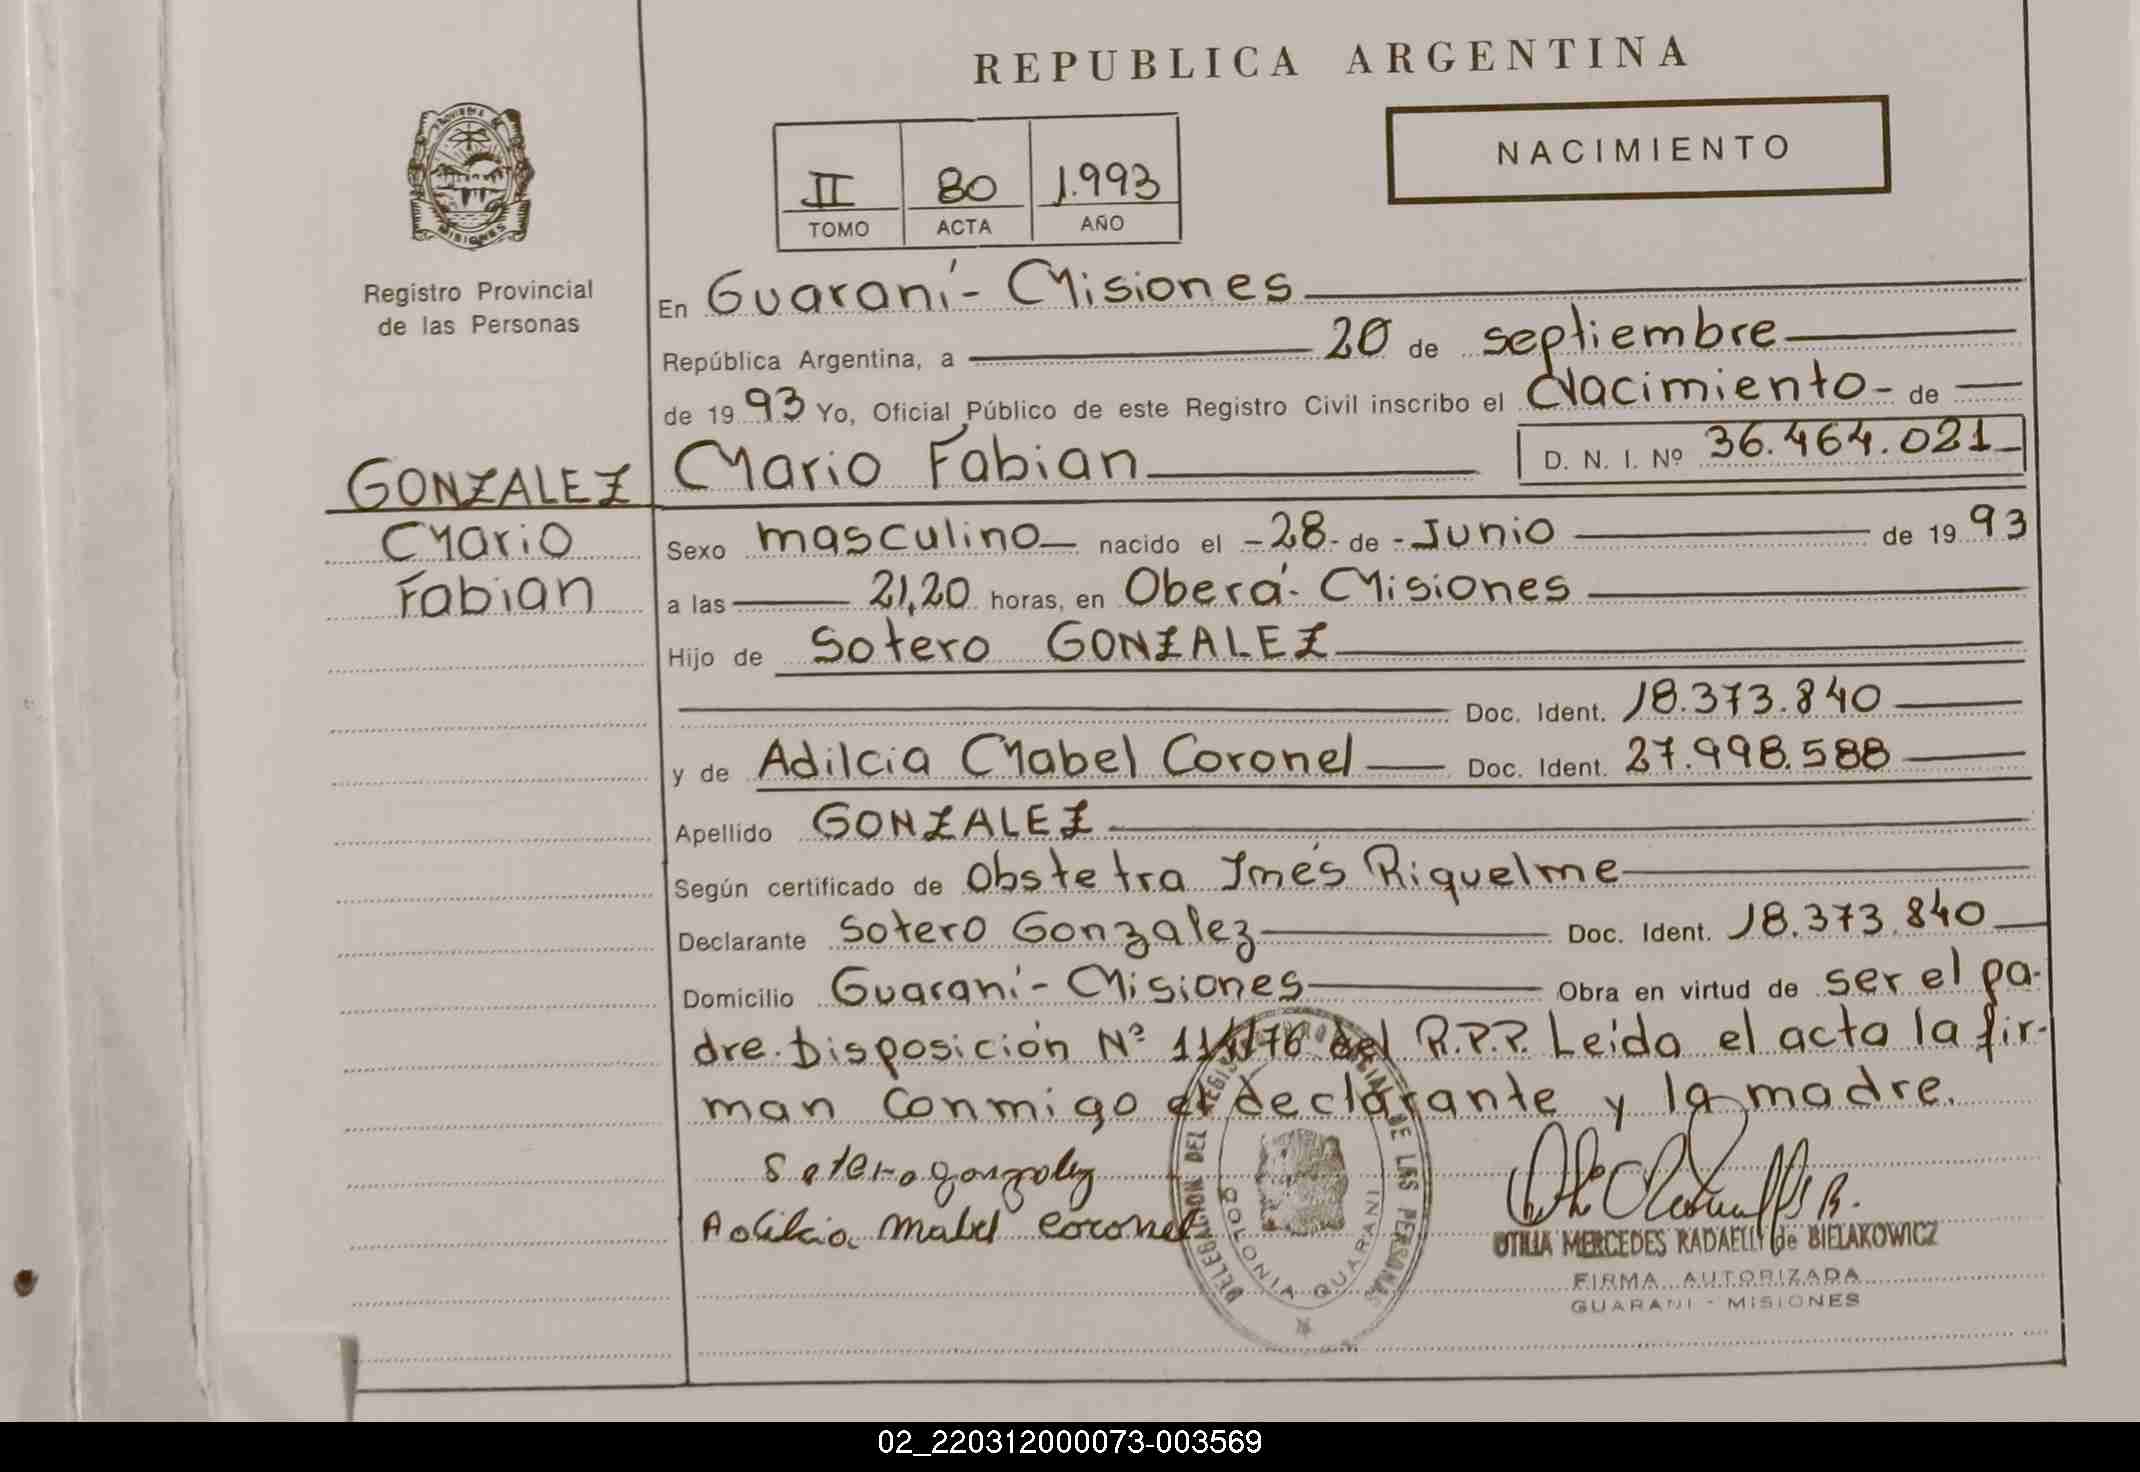 REPUBLICA ARGENTINA
NACIMIENTO
II 80 1.993
TOMO ACTA AÑO
PROVINCIA DE
MISIONES
Registro Provincial
de las Personas
GONZALEZ
Mario
Fabian
En Guaraní - Misiones
República Argentina, a 20 de septiembre
de 1993 Yo, Oficial Público de este Registro Civil inscribo el Nacimiento - de
Mario Fabian D. N. I. Nº 36.464.021
Sexo masculino nacido el - 28 - de - Junio de 1993
a las 21,20 horas, en Oberá - Misiones
Hijo de Sotero GONZALEZ
Doc. Ident. 18.373.840
y de Adilcia Mabel Coronel Doc. Ident. 27.998.588
Apellido GONZALEZ
Según certificado de Obstetra Inés Riquelme
Declarante Sotero Gonzalez Doc. Ident. 18.373.840
Domicilio Guaraní - Misiones Obra en virtud de ser el pa-
dre. Disposición Nº 114/76 del R.P.P. Leída el acta la fir-
man conmigo el declarante y la madre.
Sotero gonzalez
Adilcia Mabel Coronel
DELEGACION DEL REGISTRO PROVINCIAL DE LAS PERSONAS
COLONIA GUARANI
OTILIA MERCEDES RADAELLY de BIELAKOWICZ
FIRMA AUTORIZADA
GUARANI - MISIONES
02_220312000073-003569